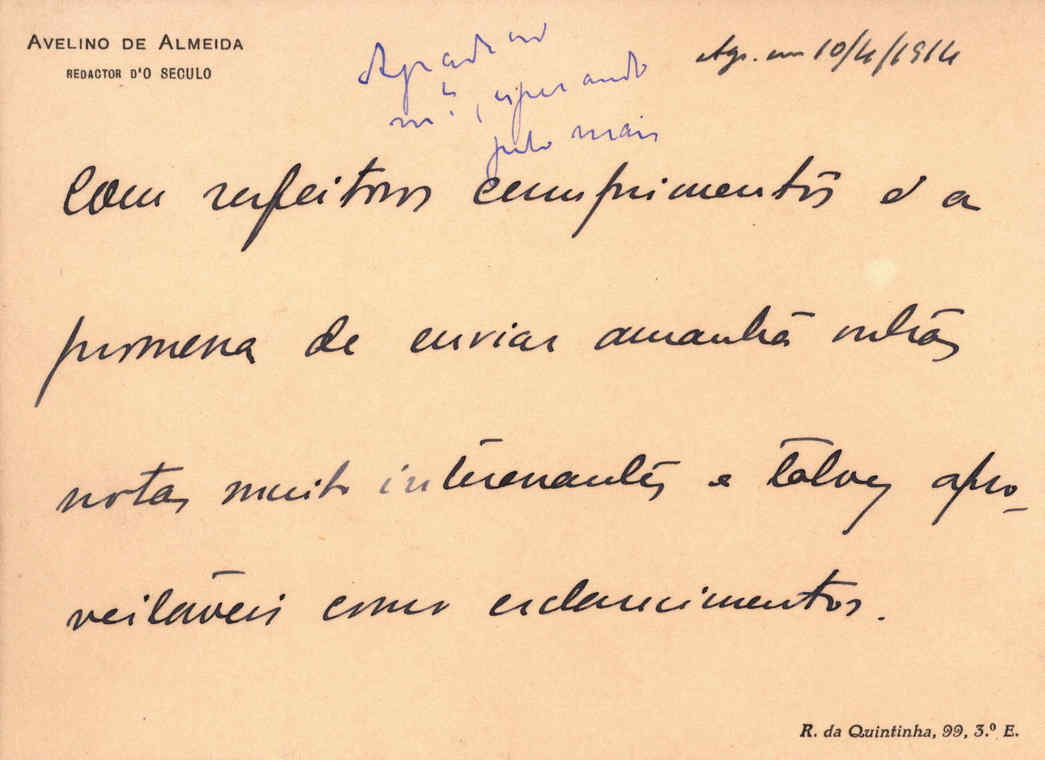 AVELINO DE ALMEIDA
REDACTOR D'O SECULO
Agradeço
m.to, esperando
pelo mais
Agr. em 10/4/1914
Com respeitosos cumprimentos e a
promessa de enviar amanhã outras
notas muito interessantes e talvez apro-
veitáveis como esclarecimentos.
R. da Quintinha, 99, 3.º E.